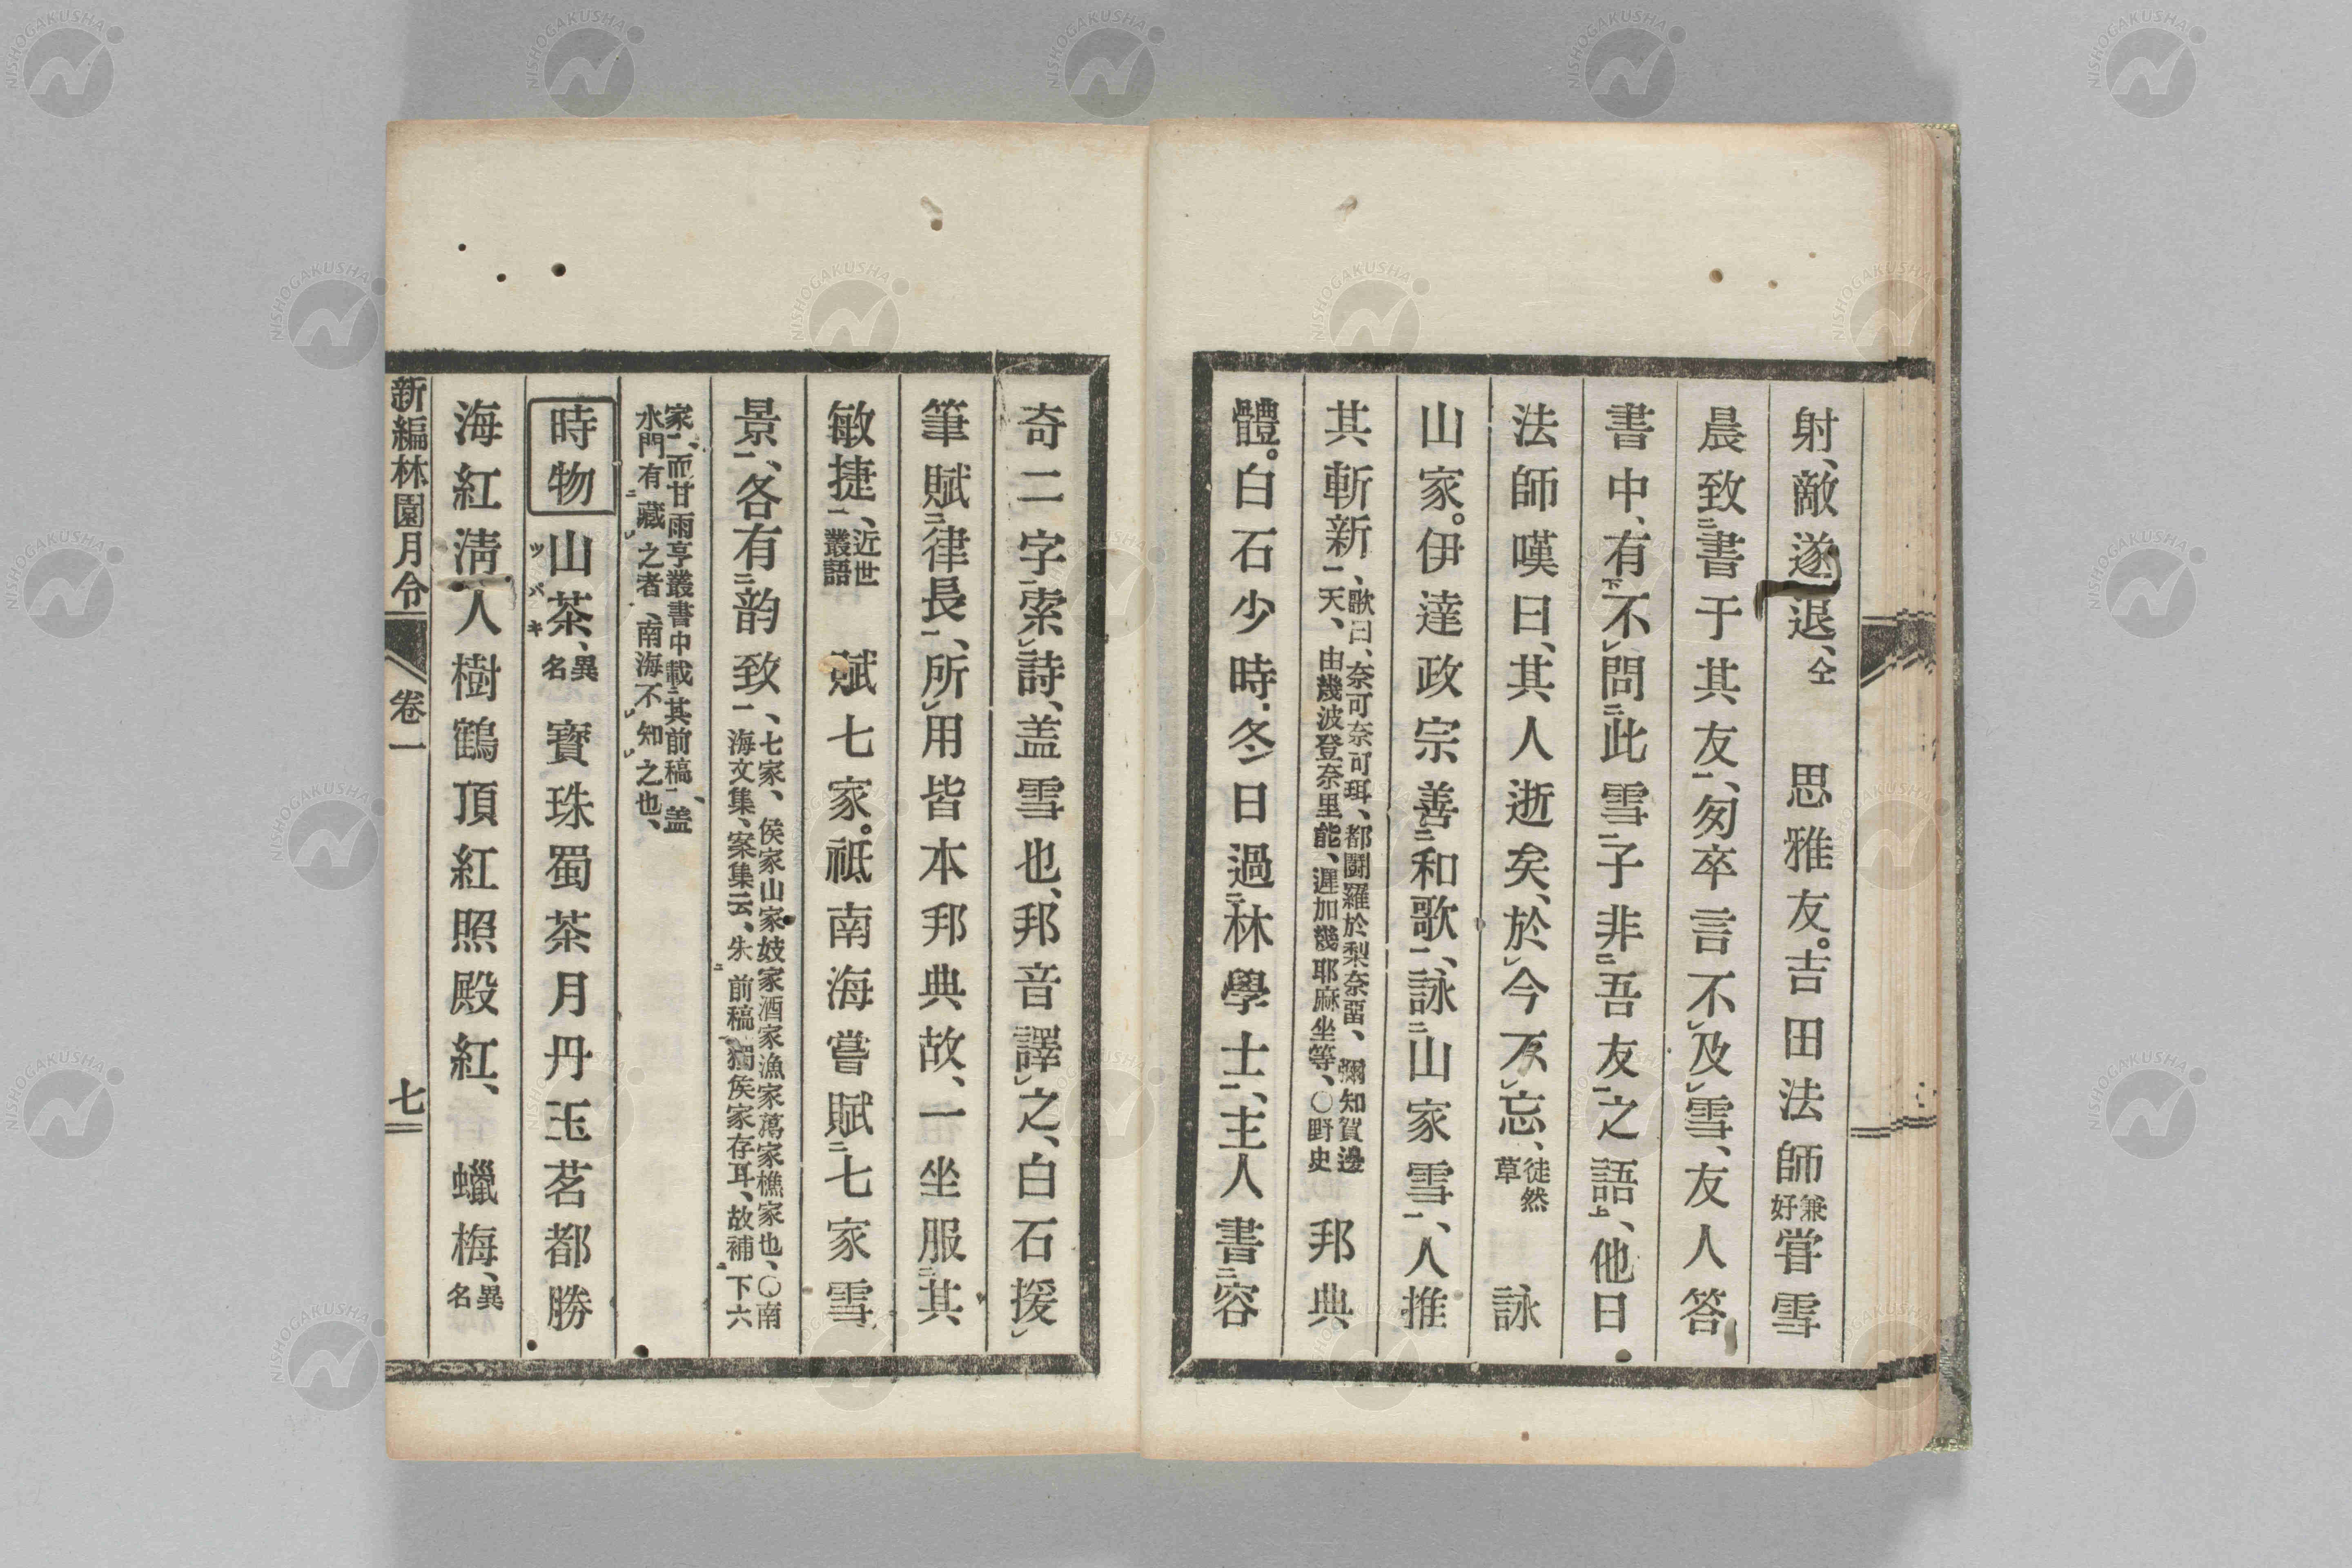 射、敵遂退、仝　思雅友。吉田法師兼好嘗雪
晨致㆓書于其友㆒、匆卒言不㆑及㆑雪、友人答
書中、有㆘不㆑問㆓此雪㆒子非㆓吾友㆒之語㆖、他日
法師嘆曰、其人逝矣、於㆑今不㆑忘、徒然草　詠
山家。伊達政宗善㆓和歌㆒、詠㆓山家雪㆒、人推
其斬新㆒、歌曰、奈可奈可珥、都闘羅於梨奈畱、彌知賀邊
天、由幾波登奈里能、遲加幾耶麻坐等、〇野史　邦典
體。白石少時、冬日過㆓林學士㆒、主人書㆓容
奇二字㆒索㆑詩、盖雪也、邦音譯㆑之、白石援㆑
筆賦㆓律長㆒、所㆑用皆本邦典故、一坐服㆓其
敏捷㆒、近世叢語　賦七家。祗南海嘗賦㆓七家雪
景㆒、各有㆓韵致㆒、七家、侯家山家妓家酒家漁家萬家樵家也、〇南
海文集、案集云、朱㆓前稿㆒獨侯家存耳、故補㆓下六
家㆒、而甘雨亭叢書中載㆓其前稿㆒、盖
水門有㆓藏㆑之者、南海不㆑知㆑之也、
時物　山茶、ツバキ　異名　寶珠蜀茶月丹玉茗都勝
海紅淸人樹鶴頂紅照殿紅、　蠟梅、異名
新編林園月令　卷一　七
NISHOGAKUSHA